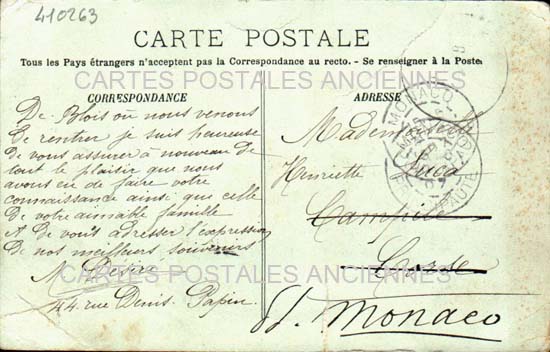 410263
CARTE POSTALE
Tous les Pays étrangers n'acceptent pas la Correspondance au recto. - Se renseigner à la Poste
CARTES POSTALES ANCIENNES
CORRESPONDANCE
De Blois où nous venons
de rentrer je suis heureuse
de vous assurer à nouveau de
tout le plaisir que nous
avons eu de faire votre
connaissance ainsi que celle
de votre aimable famille
& de vous adresser l'expression
de nos meilleurs souvenirs
M.
44 rue Denis Papin
ADRESSE
Mademoiselle
Henriette Luca
Campile
Corse
Monaco
MONACO
CARTES POSTALES ANCIENNES